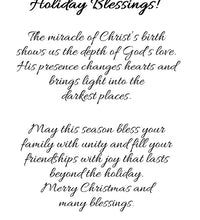 Holiday Blessings!
The miracle of Christ's birth
shows us the depth of God's love.
His presence changes hearts and
brings light into the
darkest places.
May this season bless your
family with unity and fill your
friendships with joy that lasts
beyond the holiday.
Merry Christmas and
many blessings.